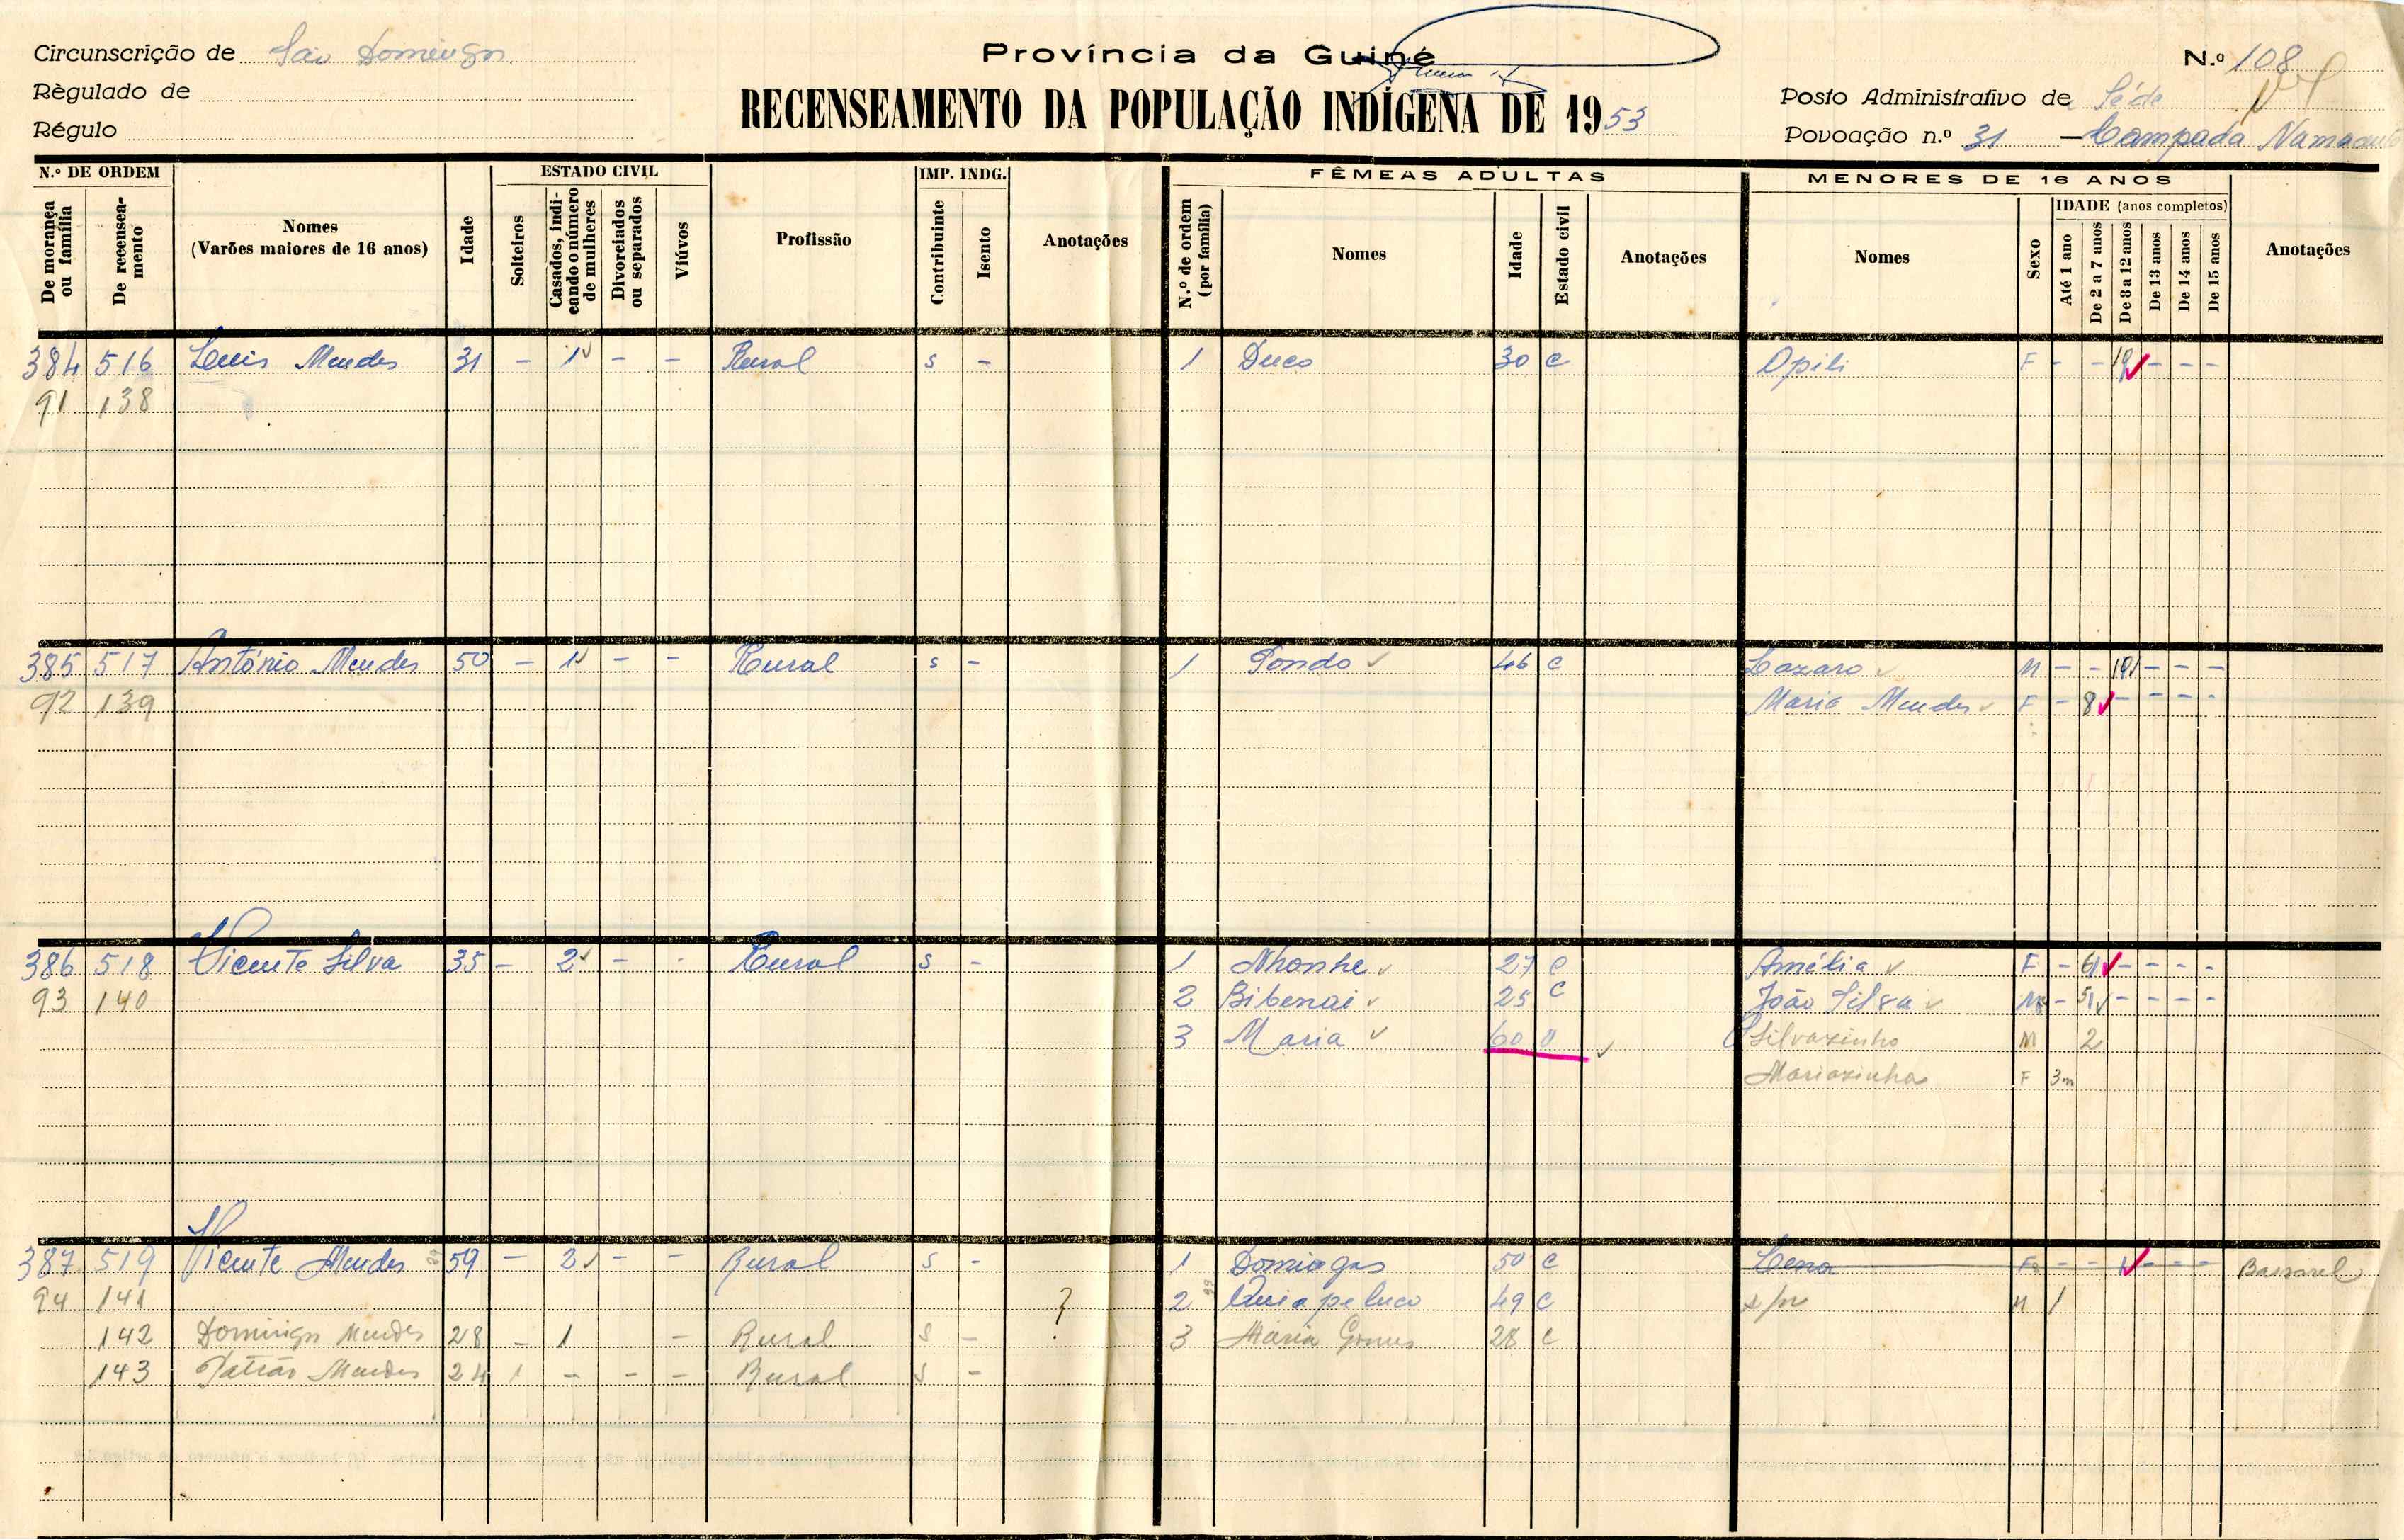 Província da Guiné
Circunscrição de São Domingos
N.º 108
Règulado de
RECENSEAMENTO DA POPULAÇÃO INDÍGENA DE 1953
Posto Administrativo de Séde
Régulo
Povoação n.º 31 — Campada
N.º DE ORDEM
ESTADO CIVIL
IMP. INDG.
FÊMEAS ADULTAS
MENORES DE 16 ANOS
De morança ou família
De recenseamento
Nomes
(Varões maiores de 16 anos)
Idade
Solteiros
Casados, indicando o número de mulheres
Divorciados ou separados
Viúvos
Profissão
Contribuinte
Isento
Anotações
N.º de ordem (por família)
Nomes
Idade
Estado civil
Anotações
Nomes
Sexo
IDADE (anos completos)
Até 1 ano
De 2 a 7 anos
De 8 a 12 anos
De 13 anos
De 14 anos
De 15 anos
Anotações
384 516 Luis Mendes 31 - 1 - - Rural s - 1 Duco 30 c Opili F - - - - -
91 138
385 517 António Mendes 50 - 1 - - Rural s - 1 Tondo 46 c Lazaro M - - - - -
92 139 Maria Mendes F - 8 - - - -
386 518 Vicente Silva 35 - 2 - - Rural s - 1 Nhonhe 27 c Amélia F - 6 - - - -
93 140 2 Bibenai 25 c João Silva M - 5 - - - -
3 Maria 60 Silvazinho M 2
Mariazinha F 3m
387 519 Vicente Mendes 59 - 2 - - Rural s - 1 Domingas 50 c F - - - - - Bassarel
94 141 ? 2 Quiapeluco 49 c s/n M 1
142 Domingos Mendes 28 - 1 - Rural s - 3 Maria Gomes 28 c
143 Patrão Mendes 24 1 - - - Rural s -